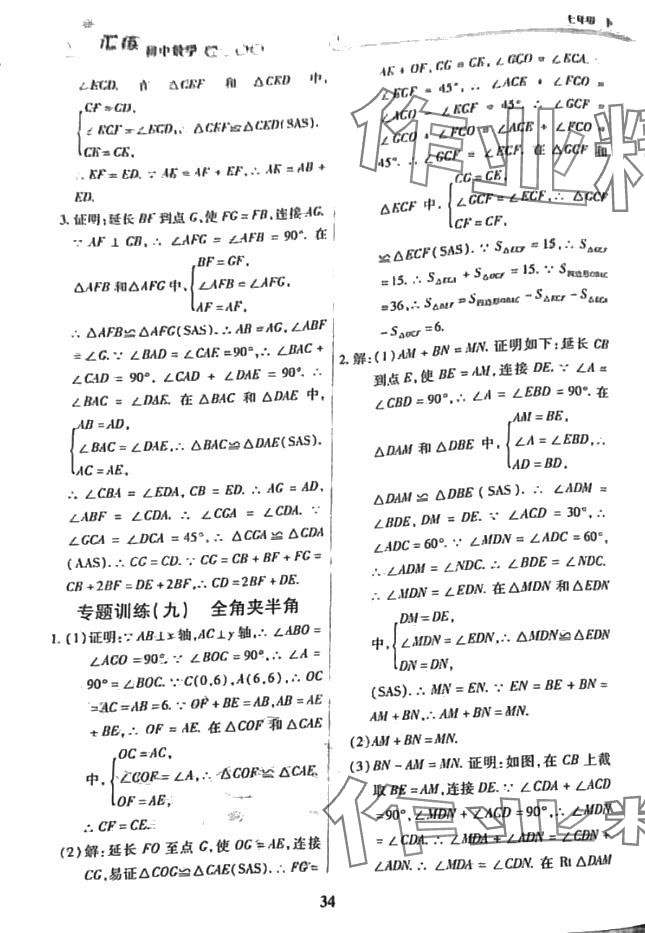 汇练 初中数学
七年级 下
∠ECD. 在 △CEF 和 △CED 中,
CF = CD,
∠ECF = ∠ECD, ∴ △CEF≌△CED(SAS).
CE = CE,
∴ EF = ED. ∵ AE = AF + EF, ∴ AE = AB +
ED.
3. 证明:延长 BF 到点 G,使 FG = FB,连接 AG.
∵ AF ⊥ CB, ∴ ∠AFG = ∠AFB = 90°. 在
BF = GF,
△AFB 和△AFG 中, ∠AFB = ∠AFG,
AF = AF,
∴ △AFB≌△AFG(SAS). ∴ AB = AG, ∠ABF
= ∠G. ∵ ∠BAD = ∠CAE = 90°, ∴ ∠BAC +
∠CAD = 90°, ∠CAD + ∠DAE = 90°. ∴
∠BAC = ∠DAE. 在 △BAC 和 △DAE 中,
AB = AD,
∠BAC = ∠DAE, ∴ △BAC≌△DAE(SAS).
AC = AE,
∴ ∠CBA = ∠EDA, CB = ED. ∴ AG = AD,
∠ABF = ∠CDA. ∴ ∠CGA = ∠CDA. ∵
∠GCA = ∠DCA = 45°, ∴ △CGA≌△CDA
(AAS). ∴ CG = CD. ∵ CG = CB + BF + FG =
CB + 2BF = DE + 2BF, ∴ CD = 2BF + DE.
专题训练(九) 全角夹半角
1. (1)证明:∵ AB⊥x 轴, AC⊥y 轴, ∴ ∠ABO =
∠ACO = 90°. ∵ ∠BOC = 90°, ∴ ∠A =
90° = ∠BOC. ∵ C(0,6), A(6,6), ∴ OC
= AC = AB = 6. ∵ OF + BE = AB, AB = AE
+ BE, ∴ OF = AE. 在 △COF 和 △CAE
OC = AC,
中, ∠COF = ∠A, ∴ △COF ≌ △CAE.
OF = AE,
∴ CF = CE.
(2)解:延长 FO 至点 G,使 OG = AE,连接
CG,易证△COG≌△CAE(SAS). ∴ GF =
AE + OF, CG = CE, ∠GCO = ∠ACE. ∵
∠ECF = 45°, ∴ ∠ACE + ∠FCO =
∠ACO - ∠ECF = 45°. ∴ ∠GCF =
∠GCO + ∠FCO = ∠ACE + ∠FCO =
45°. ∴ ∠GCF = ∠ECF. 在 △GCF 和
CG = CE,
△ECF 中, ∠GCF = ∠ECF, ∴ △GCF
CF = CF,
≌△ECF(SAS). ∵ S△GCF = 15, ∴ S△ECF
= 15. ∴ S△ECA + S△OCF = 15. ∵ S四边形OBAC
= 36, ∴ S△BEF = S四边形OBAC - S△ECF - S△ECA
- S△OCF = 6.
2. 解:(1)AM + BN = MN. 证明如下:延长 CB
到点 E,使 BE = AM,连接 DE. ∵ ∠A =
∠CBD = 90°, ∴ ∠A = ∠EBD = 90°. 在
AM = BE,
△DAM 和 △DBE 中, ∠A = ∠EBD, ∴
AD = BD.
△DAM ≌ △DBE (SAS). ∴ ∠ADM =
∠BDE, DM = DE. ∵ ∠ACD = 30°, ∴
∠ADC = 60°. ∵ ∠MDN = ∠ADC = 60°,
∴ ∠ADM = ∠NDC. ∴ ∠BDE = ∠NDC.
∴ ∠MDN = ∠EDN. 在 △MDN 和 △EDN
DM = DE,
中, ∠MDN = ∠EDN, ∴ △MDN≌△EDN
DN = DN,
(SAS). ∴ MN = EN. ∵ EN = BE + BN =
AM + BN, ∴ AM + BN = MN.
(2)AM + BN = MN.
(3)BN - AM = MN. 证明:如图,在 CB 上截
取 BE = AM,连接 DE. ∵ ∠CDA + ∠ACD
= 90°, ∠MDN + ∠ACD = 90°, ∴ ∠MDN
= ∠CDA. ∴ ∠MDA + ∠ADN = ∠CDN +
∠ADN. ∴ ∠MDA = ∠CDN. 在 Rt △DAM
34
作业精
作业精